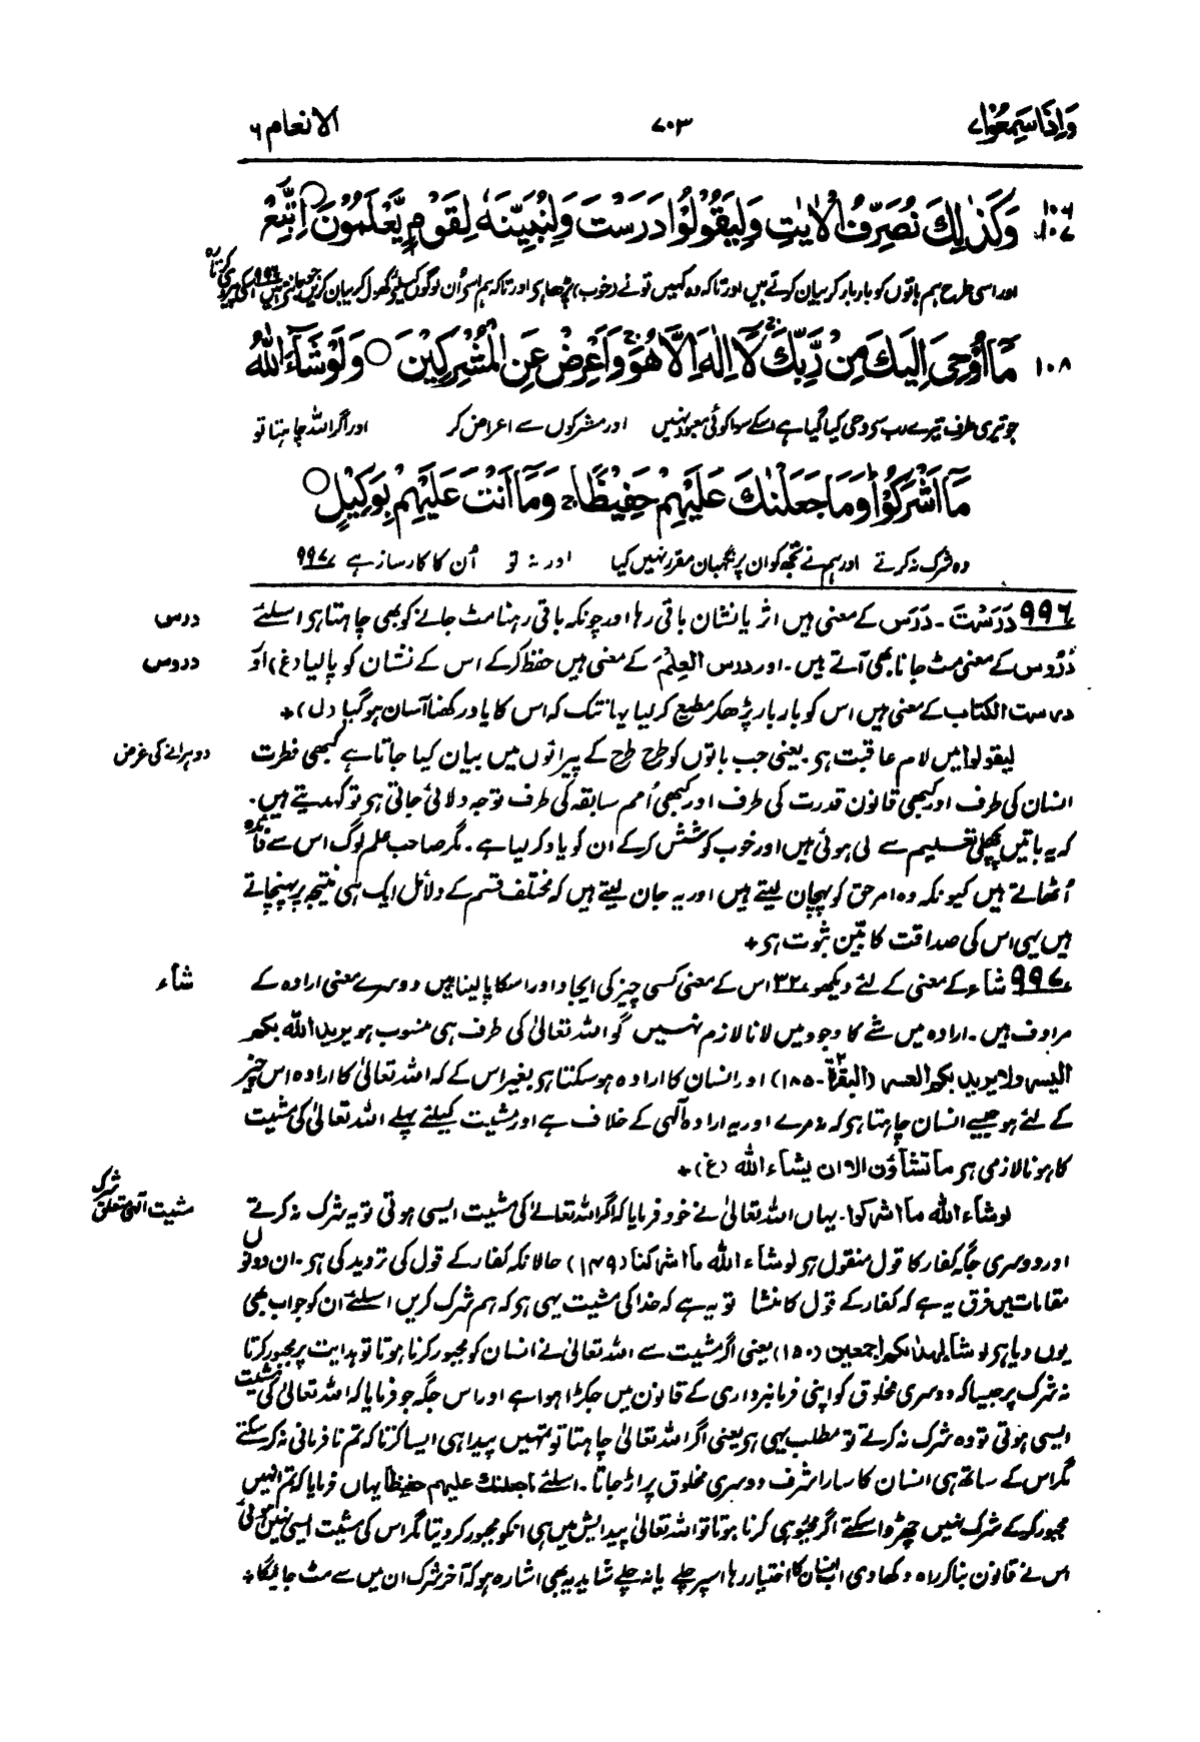 وَاِذَا سَمِعُوْا ۷ ۷۰۳ الانعام ۶
۱۰۶ ۱۰۷ وَكَذٰلِكَ نُصَرِّفُ الْاٰيٰتِ وَلِيَقُوْلُوْا دَرَسْتَ وَلِنُبَيِّنَهٗ لِقَوْمٍ يَّعْلَمُوْنَ ○ اِتَّبِعْ
اور اسی طرح ہم باتوں کو بار بار کر بیان کرتے ہیں اور تاکہ وہ کہیں تو نے (خوب) پڑھا ہی اور تاکہ ہم اسی اُن لوگوں کیلئے کھول کر بیان کریں جو جانتے ہیں ۹۹۶ اسکی پیروی کر
۱۰۸ مَآ اُوْحِيَ اِلَيْكَ مِنْ رَّبِّكَ ۚ لَآ اِلٰهَ اِلَّا هُوَ ۚ وَاَعْرِضْ عَنِ الْمُشْرِكِيْنَ ○ وَلَوْ شَآءَ اللّٰهُ
جو تیری طرف تیرے رب سی وحی کیا گیا ہے اسکے سوا کوئی معبود نہیں اور مشرکوں سے اعراض کر اور اگر اللہ چاہتا تو
مَآ اَشْرَكُوْا ؕ وَمَا جَعَلْنٰكَ عَلَيْهِمْ حَفِيْظًا ۚ وَمَآ اَنْتَ عَلَيْهِمْ بِوَكِيْلٍ ○
وہ شرک نہ کرتے اور ہم نے تجھ کو ان پر نگہبان مقرر نہیں کیا اور نہ تو اُن کا کارساز ہے ۹۹۷
۹۹۶ دَرَسْتَ۔ دَرَسَ کے معنی ہیں اثر یا نشان باقی رہا اور چونکہ باقی رہنا مٹ جانے کو بھی چاہتا ہی اسلئے درس
دُرُوس کے معنی مٹ جانا بھی آتے ہیں۔ اور درس العِلْمَ کے معنی ہیں حفظ کرکے اس کے نشان کو پالیا (غ) اور دروس
درست الکتاب کے معنی ہیں اس کو بار بار پڑھکر مطیع کرلیا یہانتک کہ اس کا یاد رکھنا آسان ہوگیا (ل)+
لیقولوا میں لام عاقبت ہی۔ یعنی جب باتوں کو طرح طرح کے پیرائوں میں بیان کیا جاتا ہے کبھی فطرت دوہرانے کی غرض
انسان کی طرف اور کبھی قانون قدرت کی طرف اور کبھی اُمم سابقہ کی طرف توجہ دلائی جاتی ہو تو کہدیتے ہیں۔
کہ یہ باتیں پچھلی تعلیم سے لی ہوئی ہیں اور خوب کوشش کرکے ان کو یاد کر لیا ہے۔ مگر صاحب علم لوگ اس سے فائدہ
اُٹھاتے ہیں کیونکہ وہ امر حق کو پہچان لیتے ہیں اور یہ جان لیتے ہیں کہ مختلف قسم کے دلائل ایک ہی نتیجہ پر پہنچاتے
ہیں یہی اس کی صداقت کا بیّن ثبوت ہی+
۹۹۷ شاء کے معنی کے لئے دیکھو ۳۲ اس کے معنی کسی چیز کی ایجاد اور اسکا پالینا ہیں دوسرے معنی ارادہ کے شاء
مرادف ہیں۔ ارادہ میں شے کا وجود میں لانا لازم نہیں گو اللہ تعالیٰ کی طرف ہی منسوب ہو یرید اللّٰہ بکم
الیسر ولا یرید بکم العسر (البقرۃ۲-۱۸۵) اور انسان کا ارادہ ہو سکتا ہو بغیر اس کے کہ اللہ تعالیٰ کا ارادہ اس چیز
کے لئے ہو جیسے انسان چاہتا ہی کہ نہ مرے اور یہ ارادہ آلہی کے خلاف ہے اور مشیت کیلئے پہلے اللہ تعالیٰ کی مشیت
کا ہونا لازمی ہی ما تشاؤن الا ان یشاء اللّٰہ (غ)+
لو شاء اللّٰہ ما اشرکوا۔ یہاں اللہ تعالیٰ نے خود فرمایا کہ اگر اللہ تعالےٰ کی مشیت ایسی ہوتی تو یہ شرک نہ کرتے مشیت آلہی متعلق شرک
اور دوسری جگہ کفار کا قول منقول ہو لو شاء اللّٰہ ما اشرکنا (۱۴۹) حالانکہ کفار کے قول کی تردید کی ہو۔ ان دونوں
مقامات میں فرق یہ ہے کہ کفار کے قول کا منشا تو یہ ہے کہ خدا کی مشیت یہی ہو کہ ہم شرک کریں اسلئے ان کو جواب بھی
یوں دیا ہی لو شاء لہدٰکم اجمعین (۱۵۰) یعنی اگر مشیت سے اللہ تعالیٰ نے انسان کو مجبور کرنا ہوتا تو ہدایت پر مجبور کرتا
نہ شرک پر جیسا کہ دوسری مخلوق کو اپنی فرمانبرداری کے قانون میں جکڑا ہوا ہے اور اس جگہ جو فرمایا کہ اللہ تعالیٰ کی مشیت
ایسی ہوتی تو وہ شرک نہ کرتے تو مطلب یہی ہو یعنی اگر اللہ تعالیٰ چاہتا تو تمہیں پیدا ہی ایسا کرتا کہ تم نافرمانی نہ کر سکتے
مگر اس کے ساتھ ہی انسان کا سارا شرف دوسری مخلوق پر اڑ جاتا۔ اسلئے ما جعلنٰک علیہم حفیظا یہاں فرمایا کہ تم انہیں
مجبور کرکے شرک نہیں چھڑوا سکتے اگر مجبور ہی کرنا ہوتا تو اللہ تعالیٰ پیدایش میں ہی انکو مجبور کر دیتا مگر اس کی مشیت ایسی نہیں ہوئی
اس نے قانون بنا کر راہ دکھا دی اب انسان کا اختیار رہا اسپر چلے یا نہ چلے شاید یہ بھی اشارہ ہو کہ آخر شرک ان میں سے مٹ جائیگا+